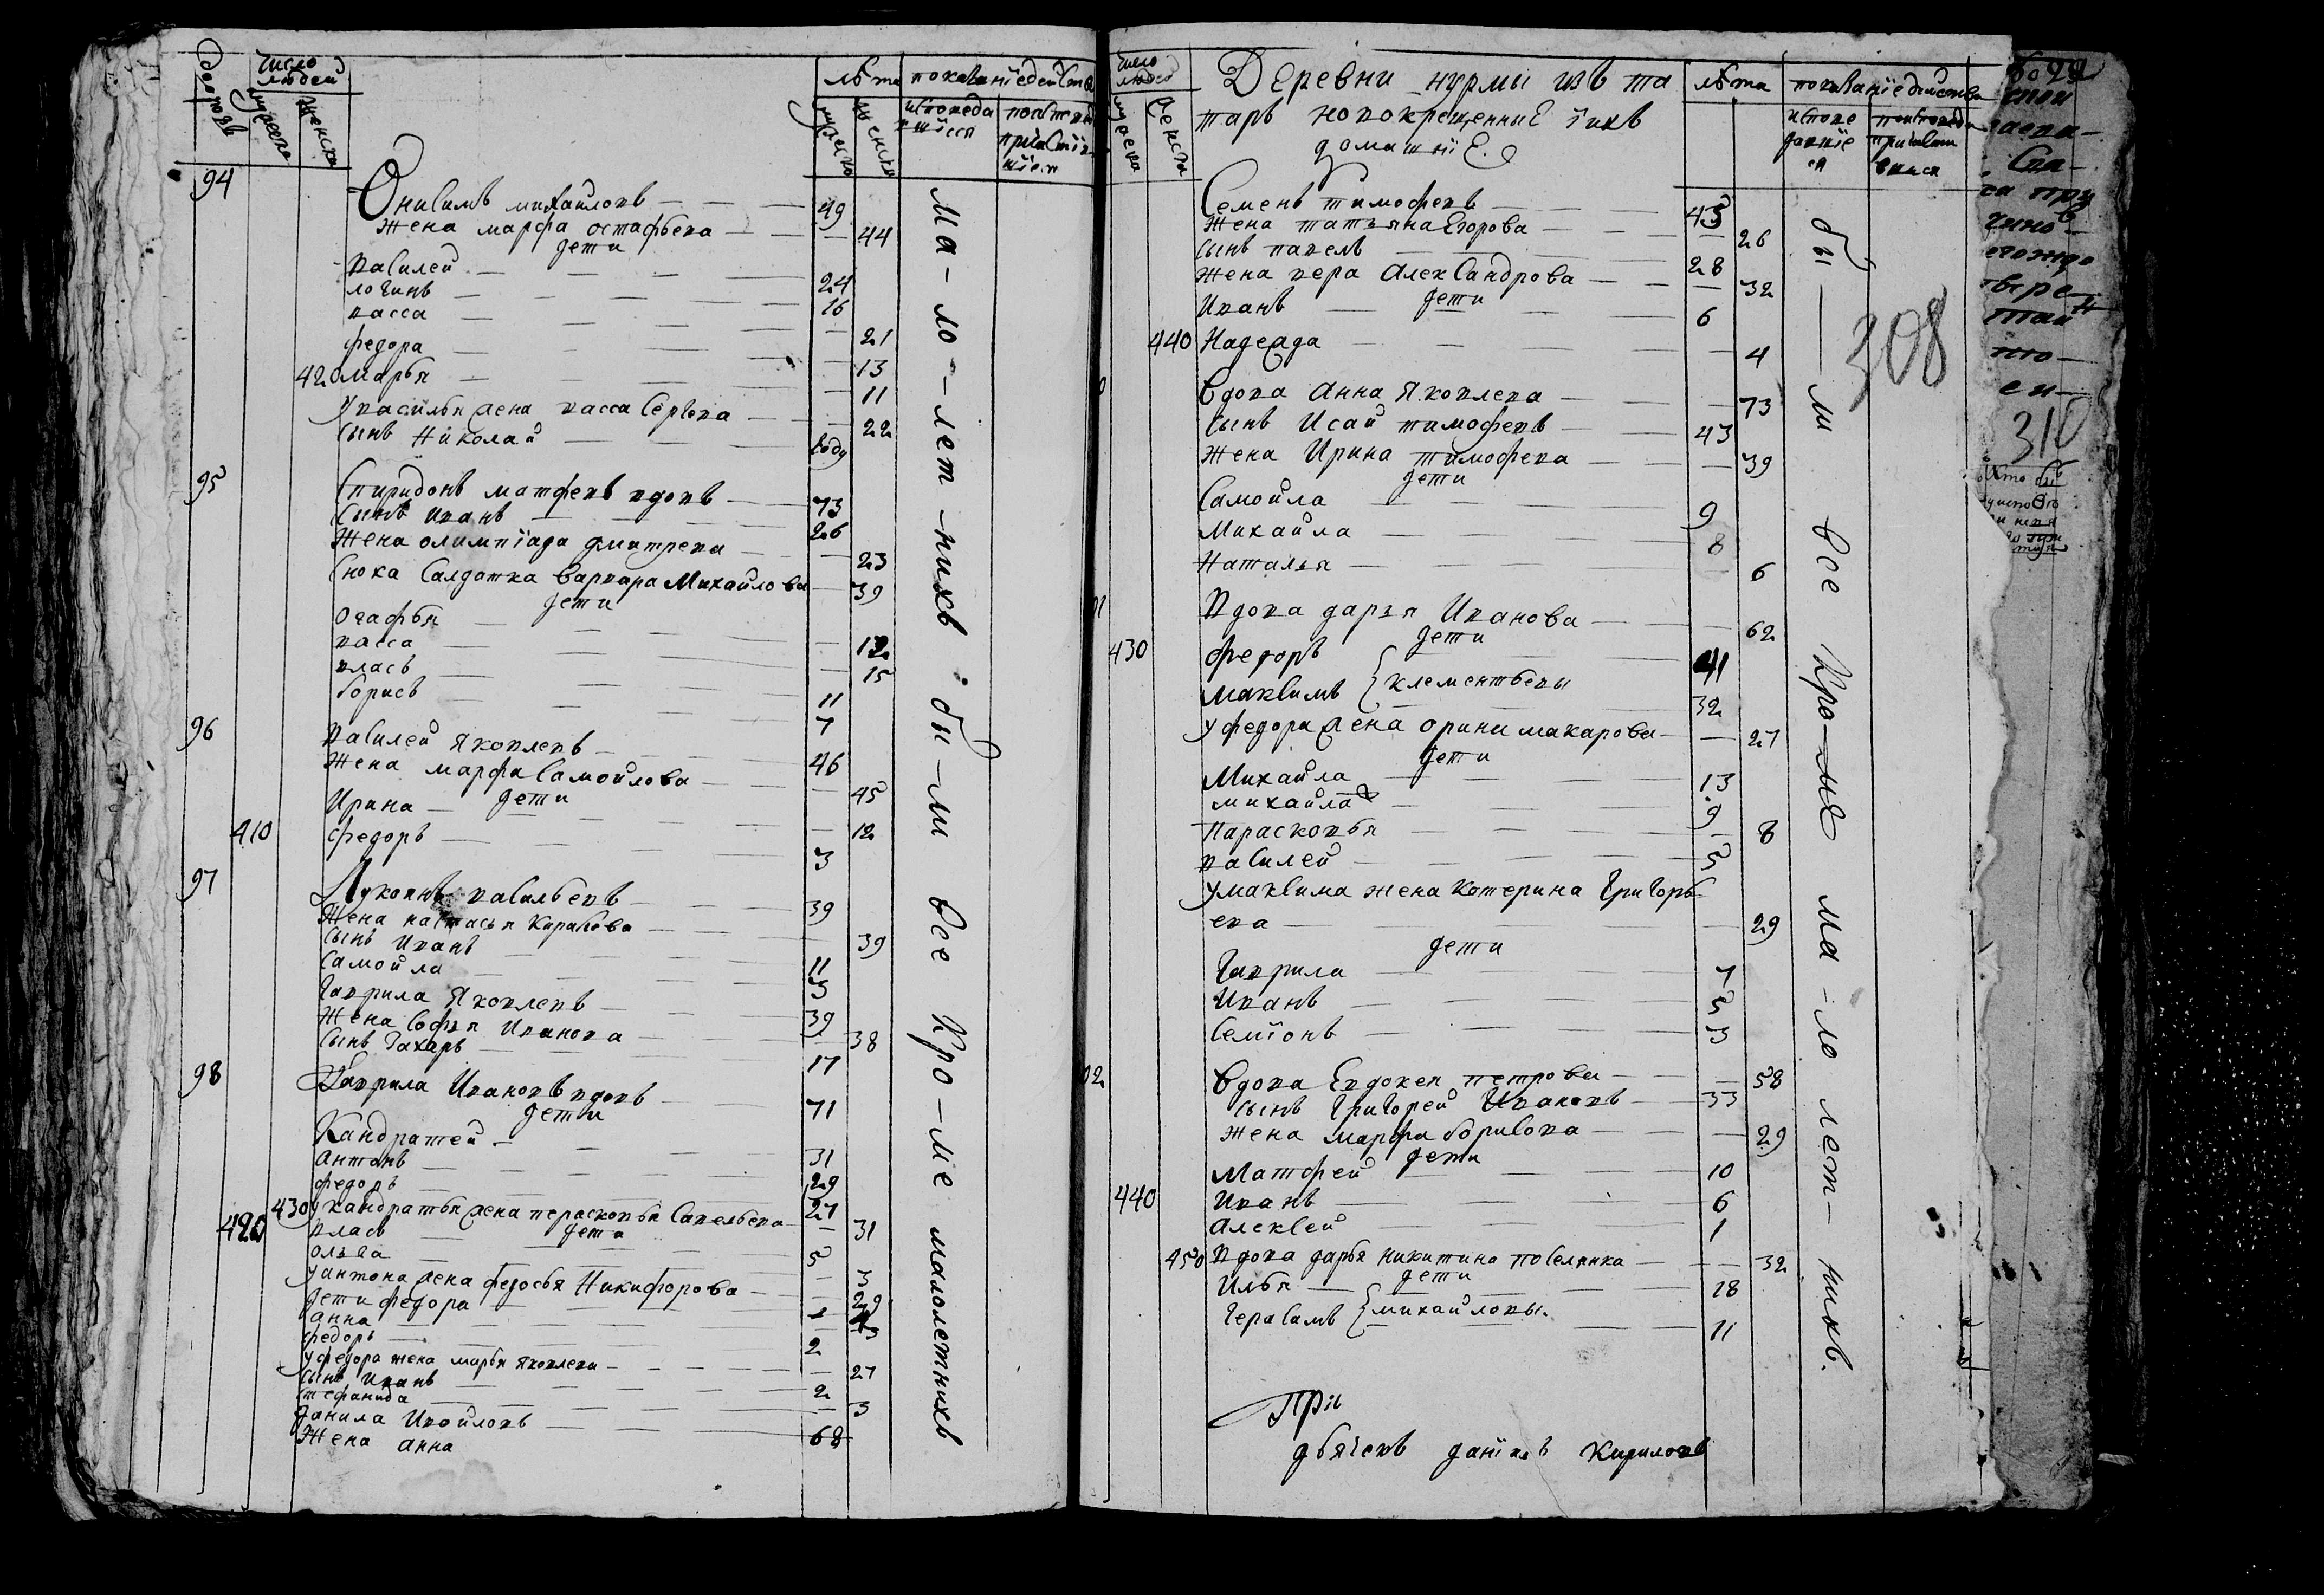 дворовъ
число людей
мужеска
женска
лѣта
показанїе действа
мужеска
женска
94
Онисимъ михайловъ — 49
жена марфа остафьева — 44
дети
василей — 24
логинъ — 16
васса — 21
федора — 13
420 марья — 11
у василья жена васса Сергева — 22
сынъ Николай — году
95
Спиридонъ матфевъ вдовъ — 73
сынъ иванъ — 26
жена олимпїада дмитрева — 23
сноха Салдатка варвара Михайлова — 39
дети
огафья — 12
васса — 15
власъ — 11
борисъ — 7
96
василей яковлевъ — 46
жена марфа Самойлова — 45
дети
Ирина — 12
410 федоръ — 3
97
Лукоянъ васильевъ — 39
жена настасья Кирилова — 39
сынъ иванъ — 11
Самойла — 3
гаврила яковлевъ — 39
жена Софья Иванова — 38
сынъ Захаръ — 17
98
Гаврила Ивановъ вдовъ — 71
дети
Кандратей — 31
антонъ — 29
федоръ — 27
430 у кандратья жена перасковья Савельева — 31
дети
420 власъ — 5
ольга — 3
у антона жена федосья Никифорова — 29
дети федора
анна — 3
федоръ — 2
у федора жена марья яковлева — 27
сынъ Иванъ — 2
стефанида — 3
данила Ивойловъ — 68
жена анна
ма-ло-лет-нихъ бы-ли все кро-ме малолетнихъ
число людей
мужеска
женска
Деревни нурмы изъ та
таръ новокрещенные їихъ
домашнїе.
лѣта
показанїе действа
Семенъ тимофевъ — 43
жена татьяна Егорова — 26
сынъ павелъ — 28
жена вера Александрова — 32
дети
Иванъ — 6
440 Надежда — 4
вдова анна яковлева — 73
сынъ Исай тимофевъ — 43
жена Ирина тимофева — 39
дети
Самойла — 9
Михайла — 8
Наталья — 6
вдова дарья Иванова — 62
дети
430 федоръ — 41
максимъ { клементьевы — 32
у федора жена орина макарова — 27
дети
Михайла — 13
михайла — 9
Парасковья — 8
василей — 5
у максима жена Котерина Григорь
ева — 29
дети
гаврила — 7
Иванъ — 5
Семїонъ — 3
02
вдова Евдокея петрова — 58
сынъ Григорей Ивановъ — 33
жена марфа борисова — 29
дети
Матфей — 10
440 Иванъ — 6
алексей — 1
450 вдова дарья никитина поселянка — 32
дети
Илья — 18
герасимъ { михайловы. — 11
бы-ли все Кро-ме ма-ло лет-нихъ.
308
При
дьячекъ данїилъ Кирилловъ
310